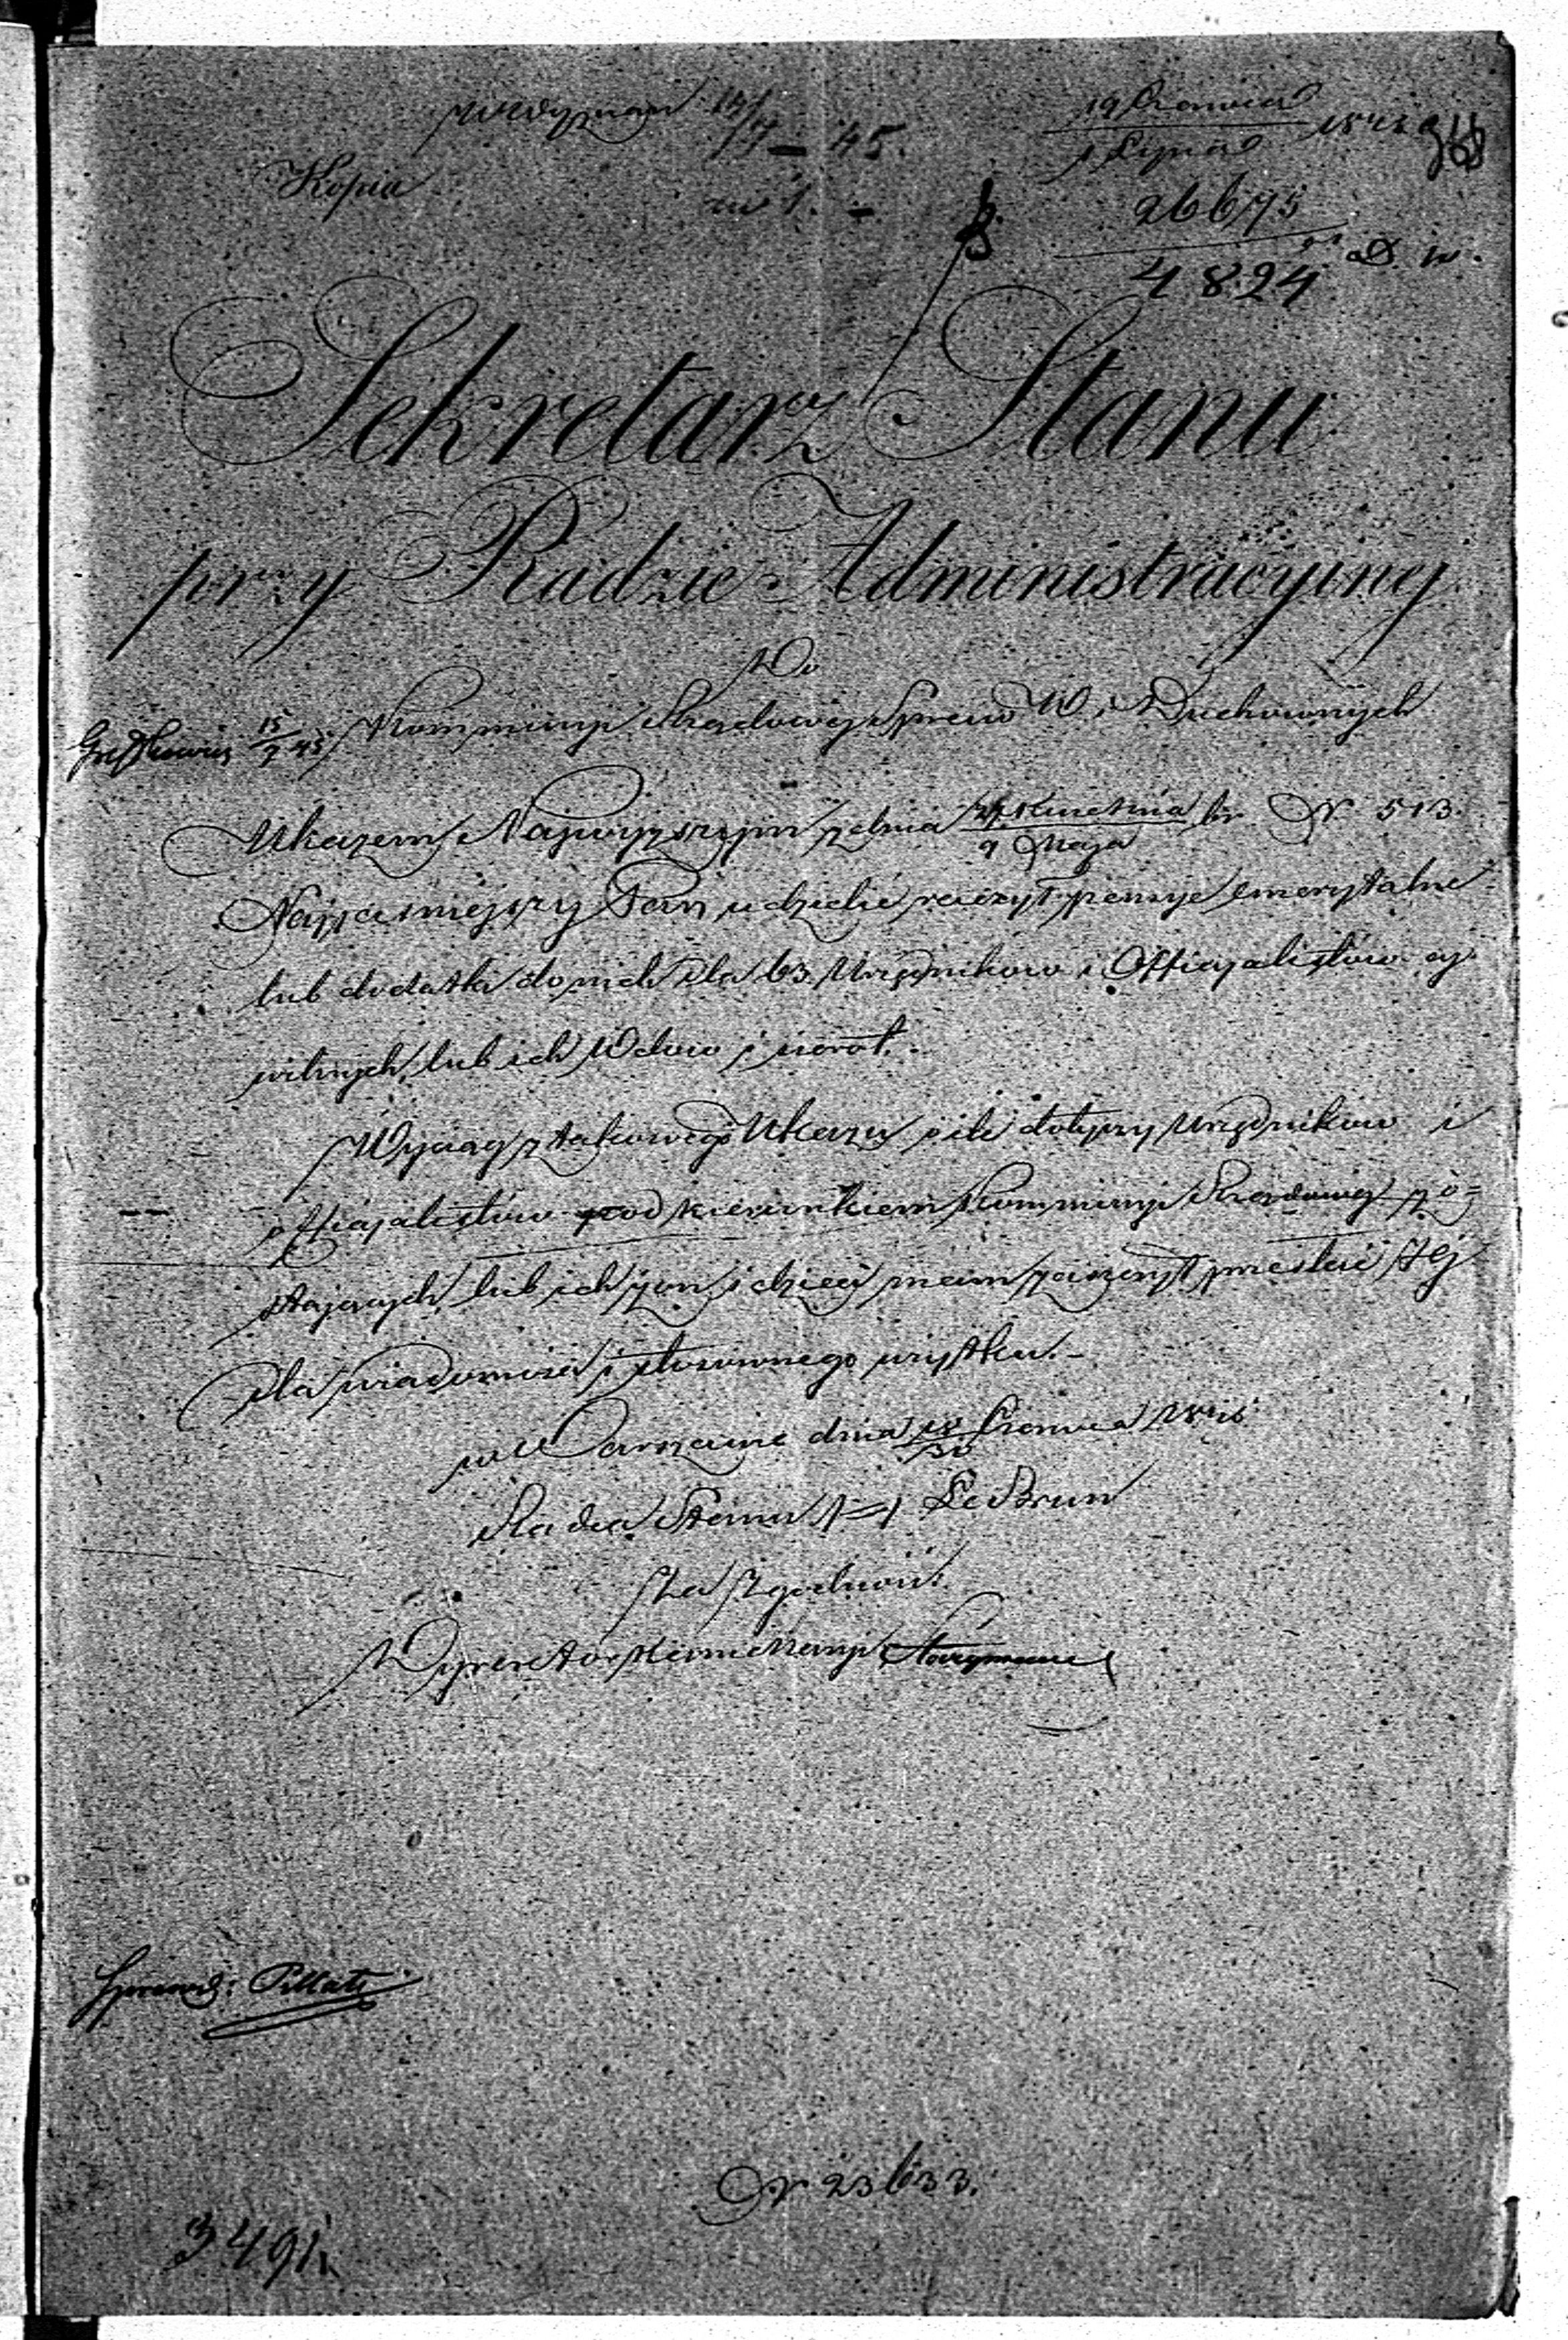 Kopia
14/7 – 45.
19 Czerwca
1 Lipca 1845
26675
4824
Sekretarz Stanu
przy Radzie Administracyjnej
Do
Kommissyi Rządowej Spraw W. i Duchownych
15/7 45
Ukazem Najwyższym z dnia 27 Kwietnia / 9 Maja br. N 513.
Najjaśniejszy Pan, udzielić raczył pensye emerytalne
lub dodatki do nich dla 63 Urzędników i Officyalistów cy-
wilnych, lub ich Wdów i sierot.
Wyciąg z takowego Ukazu o ile dotyczy Urzędników i
officyalistów pod kierunkiem Kommissyi Rządowej zo=
stających, lub ich żon i dzieci mam zaszczyt przesłać Jej
dla wiadomości i stosownego użytku.–
w Warszawie dnia 18/30 Czerwca 1845
Radca Stanu (–) Le Brun
Za Zgodność
Dyrektor Kancellaryi
Sprawdz: Pillati
N 23633.
3491.